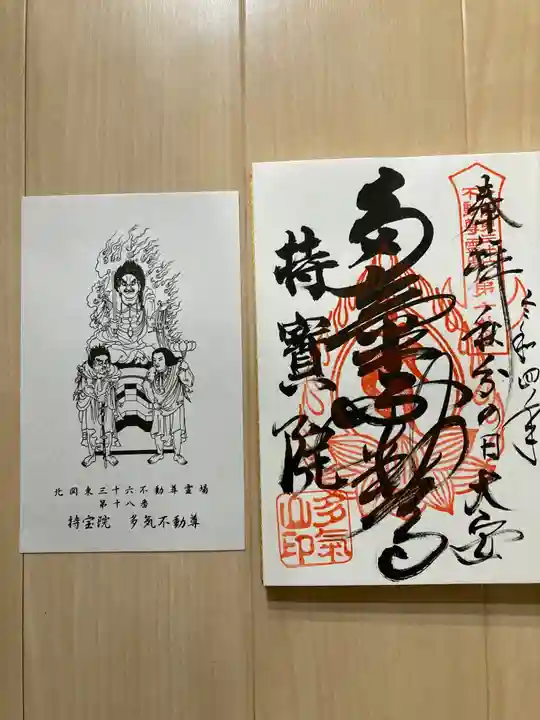 北関東三十六不動尊霊場
第十八番
持宝院 多気不動尊
奉拝
令和四年
秋分の日
多氣不動尊
持寳院
多氣
山印